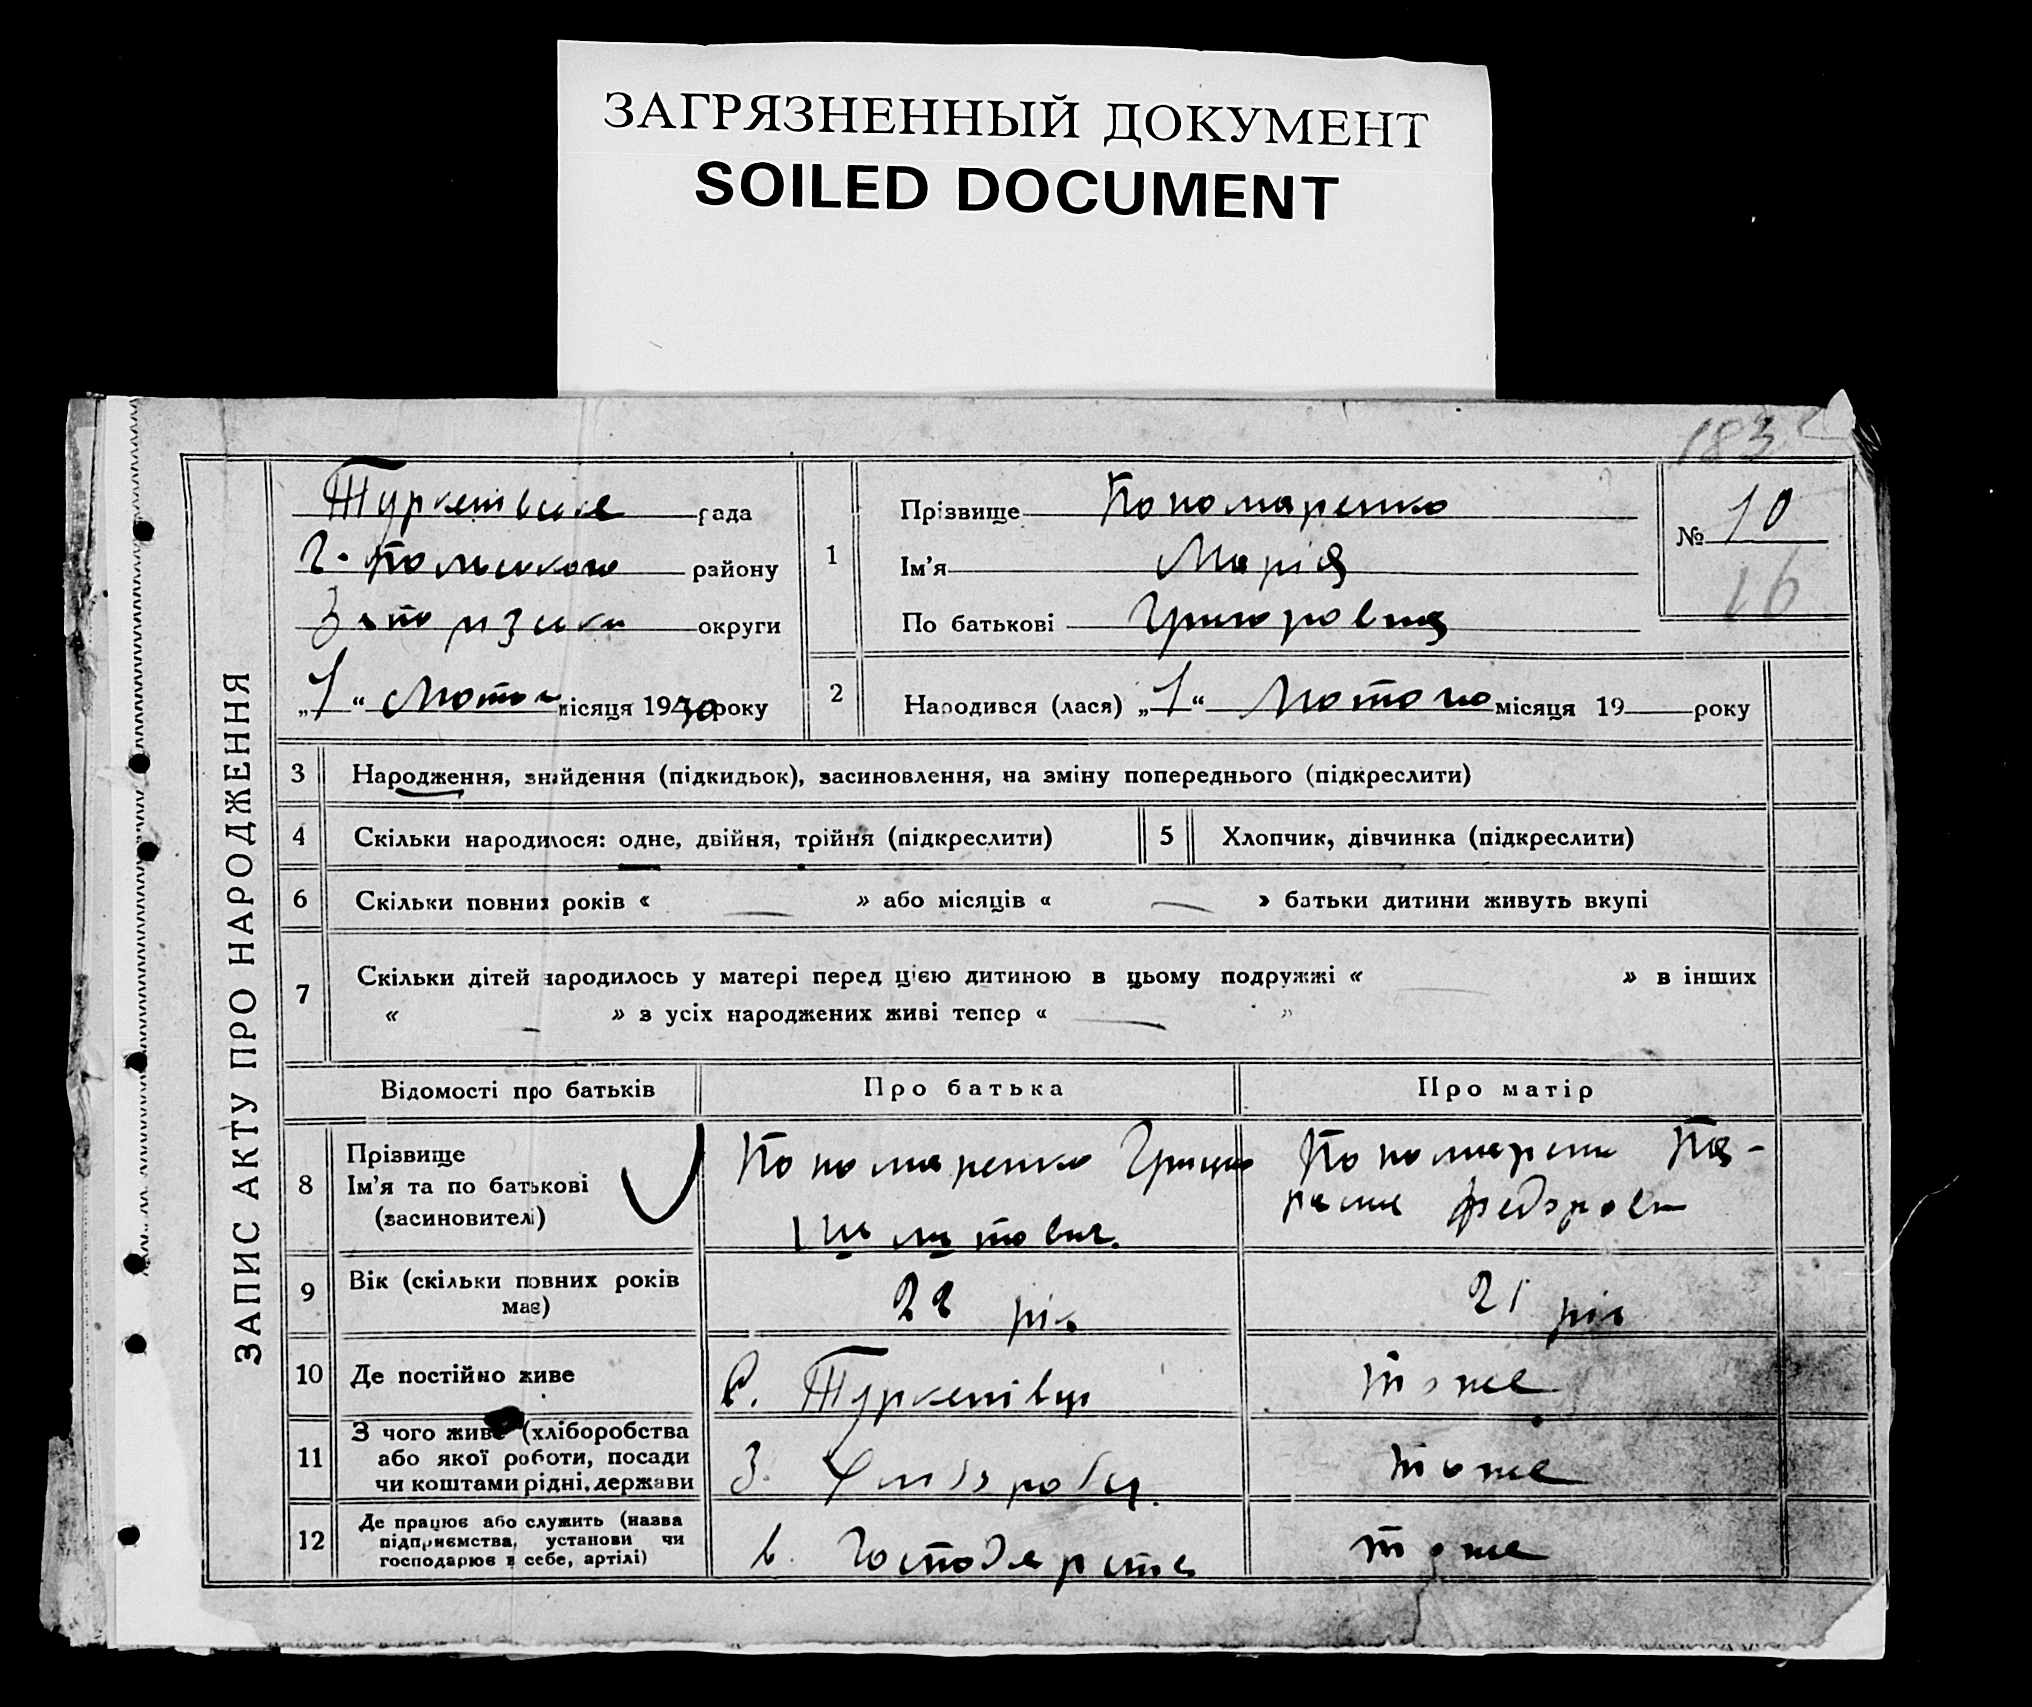 ЗАГРЯЗНЕННЫЙ ДОКУМЕНТ
SOILED DOCUMENT
183
ЗАПИС АКТУ ПРО НАРОДЖЕННЯ
Туркенівська рада
району
округи
„1“ Лютого місяця 1930 року
1
Прізвище Пономаренко
Ім'я Марія
По батькові Григоровна
№ 10
16
2 Народився (лася) „1“ Лютого місяця 19 року
3 Народження, знайдення (підкидьок), засиновлення, на зміну попереднього (підкреслити)
4 Скільки народилося: одне, двійня, трійня (підкреслити) 5 Хлопчик, дівчинка (підкреслити)
6 Скільки повних років « — » або місяців « — » батьки дитини живуть вкупі
7 Скільки дітей народилось у матері перед цією дитиною в цьому подружжі « — » в інших
« — » з усіх народжених живі тепер « — »
Відомості про батьків Про батька Про матір
8 Прізвище
Ім'я та по батькові
(засиновителі)
Пономаренко Грицко
Пономаренко Па-
9 Вік (скільки повних років
має)
22 рік
21 рік
10 Де постійно живе С. Туркенівці тоже
11 З чого живе (хліборобства
або якої роботи, посади
чи коштами рідні, держави
З. Хліборобц. тоже
12 Де працює або служить (назва
підприємства, установи чи
господарює в себе, артілі)
в. Господарстві тоже